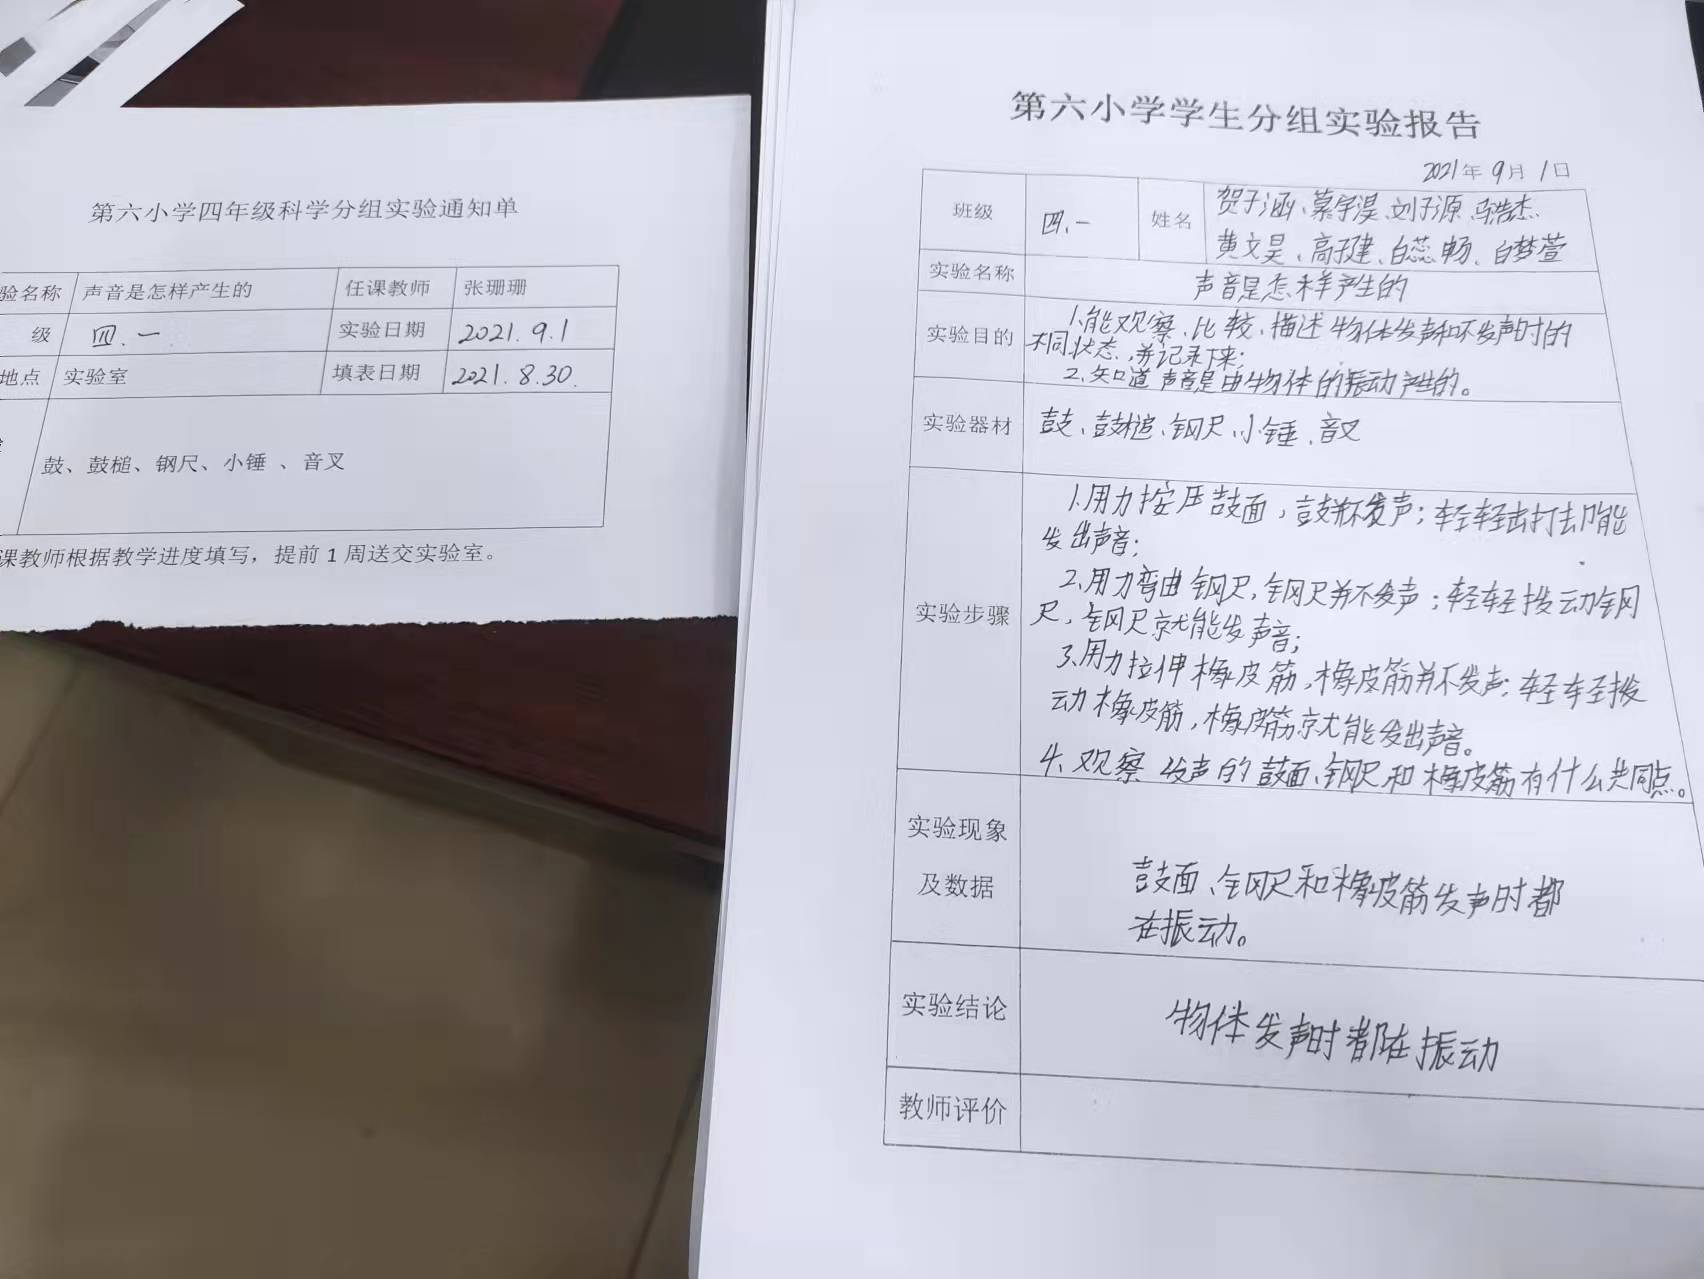 第六小学四年级科学分组实验通知单
验名称 声音是怎样产生的 任课教师 张珊珊
级 四.一 实验日期 2021.9.1
地点 实验室 填表日期 2021.8.30.
鼓、鼓槌、钢尺、小锤 、音叉
课教师根据教学进度填写，提前 1 周送交实验室。
第六小学学生分组实验报告
2021年 9月 1日
班级 四.一 姓名 贺子涵、慕宇淏、刘子源、马浩杰、
黄文昊、高子建、白蕊畅、白梦萱
实验名称 声音是怎样产生的
实验目的 1.能观察、比较、描述物体发声和不发声时的
不同状态，并记录下来；
2、知道声音是由物体的振动产生的。
实验器材 鼓、鼓槌、钢尺、小锤、音叉
实验步骤 1.用力按压鼓面，鼓并不发声；轻轻击打却能
发出声音；
2.用力弯曲钢尺，钢尺并不发声；轻轻拨动钢
尺，钢尺就能发声音；
3、用力拉伸橡皮筋，橡皮筋并不发声；轻轻拨
动橡皮筋，橡皮筋就能发出声音。
4、观察发声的鼓面、钢尺和橡皮筋有什么共同点。
实验现象
及数据
鼓面、钢尺和橡皮筋发声时都
在振动。
实验结论 物体发声时都在振动
教师评价